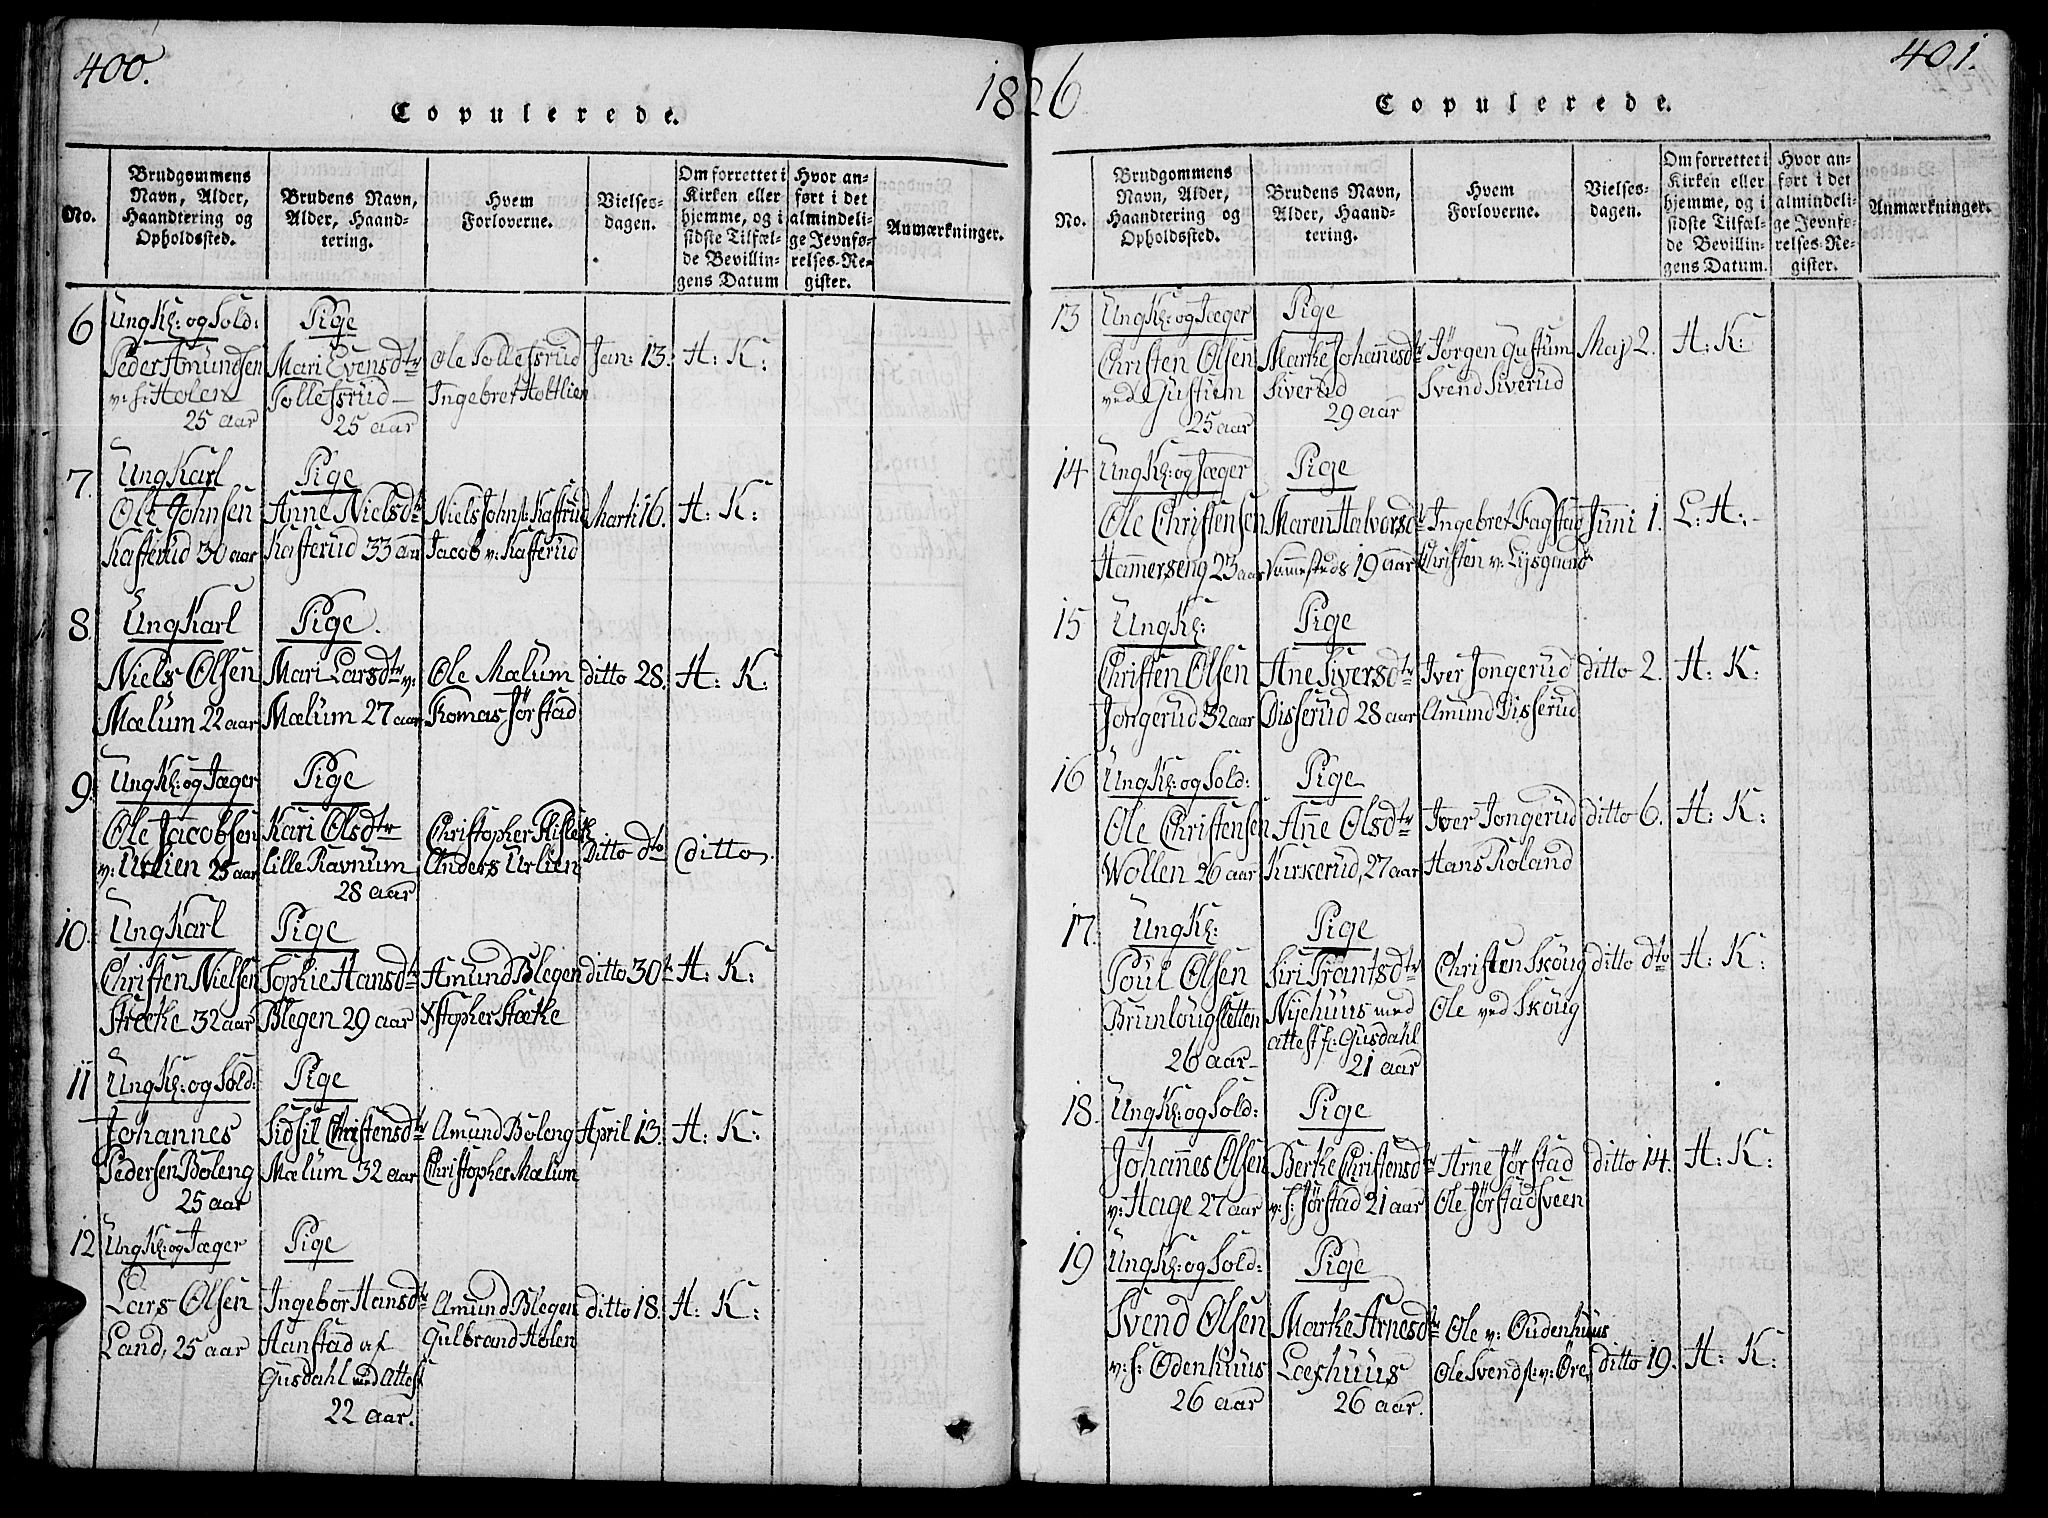 400.
1826
401.
Copulerede.
No.
Brudgommens Navn, Alder, Haandtering og Opholdssted.
Brudens Navn, Alder, Haandtering.
Hvem Forloverne.
Vielsesdagen.
Om forrettet i Kirken eller hjemme, og i sidste Tilfælde Bevillingens Datum
Hvor anført i det almindelige Jevnførelses-Register.
Anmærkninger.
6 UngK: og Sold: Pige
Peder Amundsen Mari Evensdtr Ole Tollefsrud Jan: 13. H: K:
v: s: Holen Tollefsrud Ingebret Holtlien
25 aar 25 aar
7. UngKarl Pige
Ole Johnsen Anne Nielsdtr Niels Johns: Kasterud Marti 16. H: K:
Kasterud 30 aar Kasterud 33 aar Jacob v: Kasterud
8. UngKarl Pige.
Niels Olsen Mari Larsdtr v: Ole Mælum ditto 28. H: K:
Mælum 22 aar Mælum 27 aar Tomas Jørstad
9. UngK: og Jæger Pige
Ole Jacobsen Kari Olsdtr Christopher Ditto dto Ditto
v: Urlien 25 aar Lille Ravnum Anders Urlien
28 aar
10. UngKarl Pige
Christen Nielsen Sophie Hansdtr Amund Blegen ditto 30te H: K:
Stræke 32 aar Blegen 29 aar Xstopher Stræke
11 UngK: og Sold: Pige
Johannes Sidsil Christensdtr Amund Boleng April 13. H: K:
Pedersen Boleng Mælum 32 aar Christopher Mælum
25 aar
12 UngK: og Jæger Pige
Lars Olsen Ingebor Hansdtr Amund Blegen ditto 18. H: K:
Land, 25 aar Hanstad af Gulbrand Holen
Gusdahl med attest
22 aar.
Copulerede.
No.
Brudgommens Navn, Alder, Haandtering og Opholdssted.
Brudens Navn, Alder, Haandtering.
Hvem Forloverne.
Vielsesdagen.
Om forrettet i Kirken eller hjemme, og i sidste Tilfælde Bevillingens Datum.
Hvor anført i det almindelige Jevnførelses-Register.
Anmærkninger.
13 UngK: og Jæger Pige
Christen Olsen Marte Johannesdtr Jørgen Gustum Maj 2. H: K:
ved Gustum Siverud Svend Siverud
25 aar 29 aar
14 UngK: og Jæger Pige
Ole Christensen Maren Halvorsdtr Ingebret Fagstad Juni 1. L: H:
Hammerseng 23 aar 19 aar Christen v: Lysgaard
15 UngK: Pige
Christen Olsen Ane Siversdtr Iver Jongerud ditto 2. H: K:
Jongerud 32 aar Disserud 28 aar Amund Disserud
16 UngK: og Sold: Pige
Ole Christensen Anne Olsdtr Iver Jongerud ditto 6. H: K:
Wollen 26 aar Kirkerud, 27 aar Hans Roland
17. UngK: Pige
Poul Olsen Siri Frantsdtr Christen Skoug ditto dto H: K:
Brunlougsletten Nyehuus med Ole ved Skoug
26 aar attest f: Gusdahl
21 aar
18. UngK: og Sold: Pige
Johannes Olsen Berte Christensdtr Arne Jørstad ditto 14. H: K:
v: Hage 27 aar v: s: Jørstad 21 aar Ole Jørstadsveen
19 UngK: og Sold: Pige
Svend Olsen Marthe Arnesdtr Ole v: Oudenhuus
v: s: Odenhuus Loeshuus Ole Svends: v: Øre ditto 19. H: K:
26 aar 26 aar.